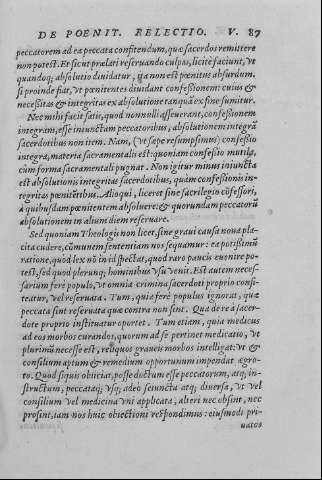 DE POENIT. RELECTIO. V. 87
peccatorem ad ea peccata confitendum, quæ sacerdos remittere
non potest. Et sicut prælati reseruando culpas, licitè faciunt, vt
quandoq; absolutio diuidatur, ꝗa non est pœnitus absurdum.
si proinde fiat, vt pœnitentes diuidant confessionem: cuius &
necessitas & integritas ex absolutione tanquā ex fine sumitur.
Nec mihi facit satis, quod nonnulli asseuerant, confessionem
integram, esse iniunctam peccatoribus, absolutionem integrā
sacerdotibus non item. Nam, (vt sæpe resumpsimus) confessio
integra, materia sacramentalis est: quoniam confessio mutila,
cùm forma sacramentali pugnat. Non igitur minus iniuncta
est absolutionis integritas sacerdotibus, quàm confessionis in-
tegritas pœnitētibus. Alioqui, liceret sine sacrilegio cōfessori,
à quibusdam pœnitentem absoluere: & quorundam peccatorū
absolutionem in alium diem reseruare.
Sed quoniam Theologis non licet, sine graui causa noua pla-
cita cudere, cōmunem sententiam nos sequamur: ea potissimū
ratione, quòd lex nō in id spectat, quod raro paucis euenire po-
test, sed quod plerunq; hominibus vsu venit. Est autem neces-
sarium ferè populo, vt omnia crimina sacerdoti proprio confi-
teatur, vel reseruata. Tum, quia ferè populus ignorat, quæ
peccata sint reseruata quæ contra non sint. Qua de re à sacer-
dote proprio instituatur oportet. Tum etiam, quia medicus
ad eos morbos curandos, quorum ad se pertinet medicatio, vt
plurimū necesse est, reliquos graueis morbos intelligat: vt &
consilium aptum & remedium opportunum impendat ægro-
to. Quòd siquis obijciat, posse doctum esse peccatorum, atq; in-
structum, peccataq; vsq; adeò seiuncta atq; diuersa, vt vel
consilium vel medicina vni applicata, alteri nec obsint, nec
prosint, iam nos huic obiectioni respōdimus: eiusmodi pri-
uatos